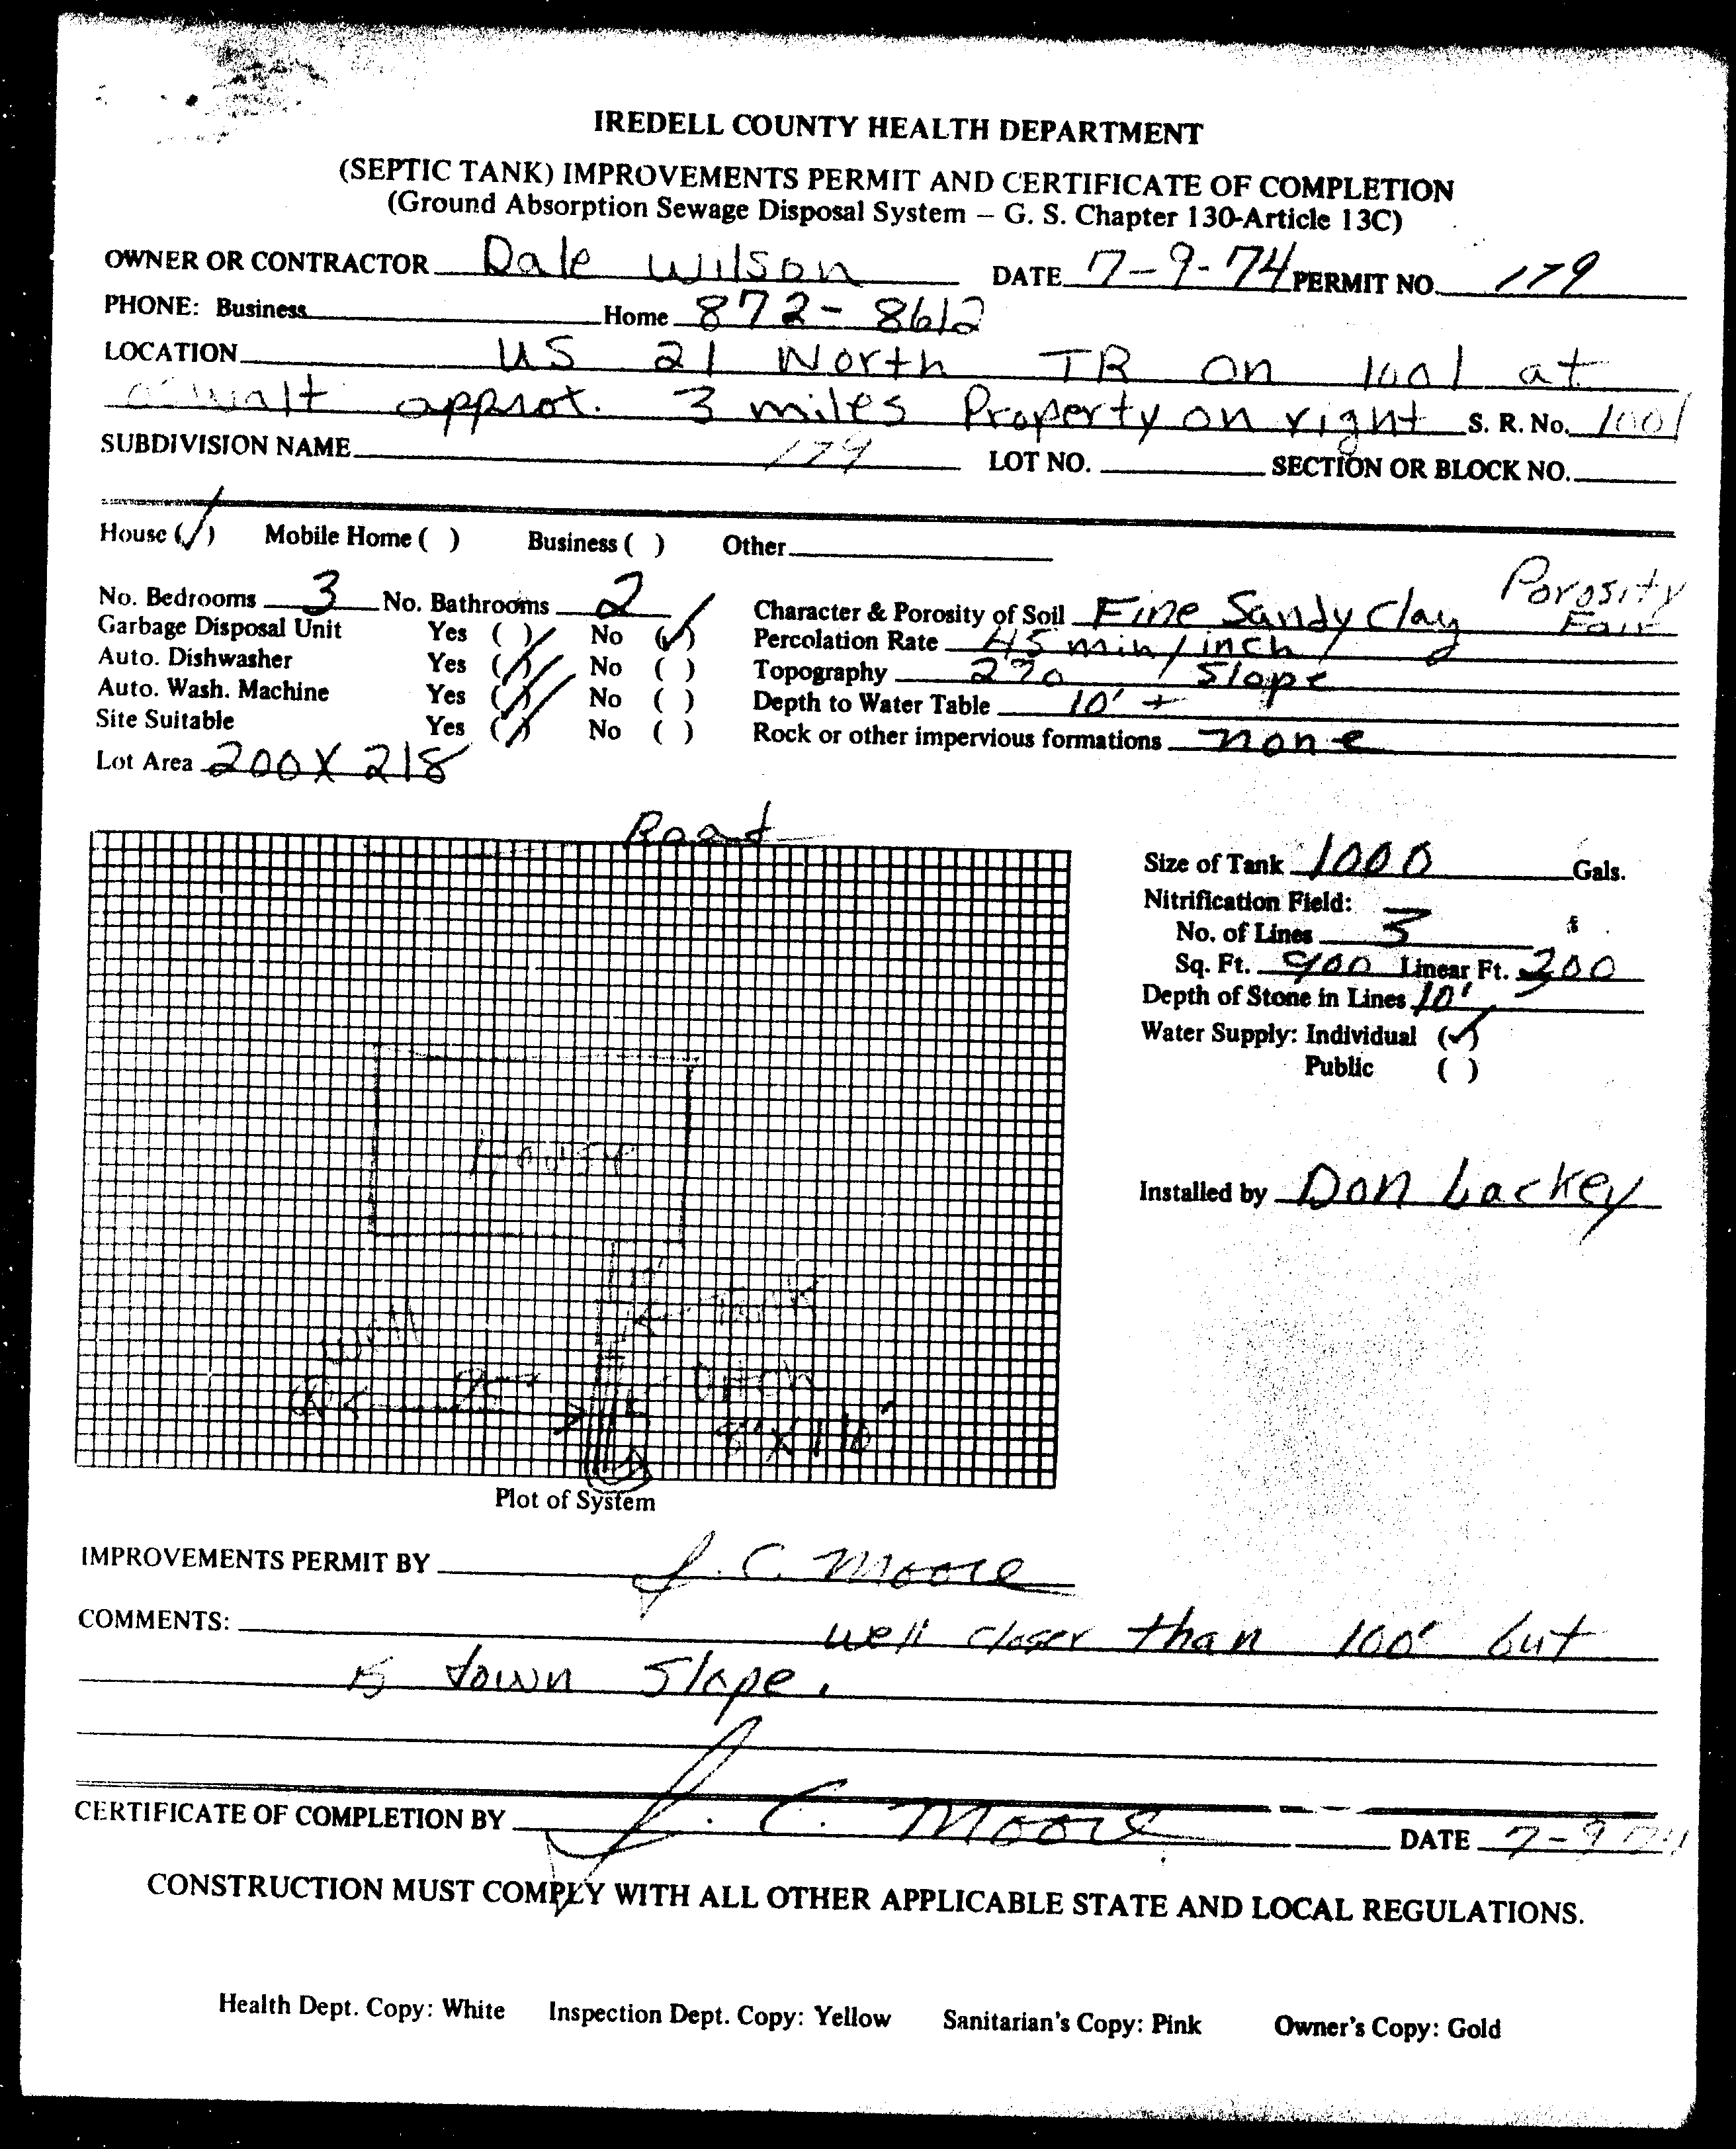 IREDELL COUNTY HEALTH DEPARTMENT
(SEPTIC TANK) IMPROVEMENTS PERMIT AND CERTIFICATE OF COMPLETION
(Ground Absorption Sewage Disposal System – G. S. Chapter 130-Article 13C)
OWNER OR CONTRACTOR Dale Wilson DATE 7-9-74 PERMIT NO. 179
PHONE: Business Home 872-8612
LOCATION US 21 North TR on 1001 at
approx. 3 miles Property on right S. R. No. 1001
SUBDIVISION NAME 179 LOT NO. SECTION OR BLOCK NO.
House (✓) Mobile Home ( ) Business ( ) Other
Porosity
No. Bedrooms 3 No. Bathrooms 2 Character & Porosity of Soil Fine Sandy Clay Fair
Garbage Disposal Unit Yes ( ) No (✓) Percolation Rate 45 min/inch
Auto. Dishwasher Yes (✓) No ( ) Topography 2% Slope
Auto. Wash. Machine Yes (✓) No ( ) Depth to Water Table 10' +
Site Suitable Yes (✓) No ( ) Rock or other impervious formations none
Lot Area 200 X 218
Road
Size of Tank 1000 Gals.
Nitrification Field:
No. of Lines 3
Sq. Ft. 900 Linear Ft. 300
Depth of Stone in Lines 10'
Water Supply: Individual (✓)
Public ( )
House
Installed by Don Lackey
Tank
Well
Ditch
Plot of System
IMPROVEMENTS PERMIT BY J. C. Moore
COMMENTS: well closer than 100' but
is down slope.
CERTIFICATE OF COMPLETION BY J. C. Moore DATE 7-9-74
CONSTRUCTION MUST COMPLY WITH ALL OTHER APPLICABLE STATE AND LOCAL REGULATIONS.
Health Dept. Copy: White Inspection Dept. Copy: Yellow Sanitarian's Copy: Pink Owner's Copy: Gold